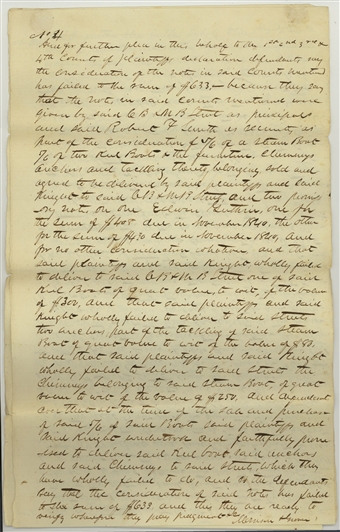 No 4
And for further plea in this behalf to the 1st 2nd 3rd &
4th Counts of plaintiffs declaration defendants say
the consideration of the notes in said Counts mentioned
has failed to the sum of $633,— because they say
that the notes in said Counts mentioned were
given by said C B & M B Strut as principals
and said Robert F Smith as security as
part of the consideration of of a Steam Boat
of two Keel Boats & the furniture, Chimneys
anchors and tackling thereto belonging sold and
agreed to be delivered by said plaintiffs and said
Knight to said C B & M B Strut, and two promis
sory notes on one Edwin one for
the sum of due in November 1840, the other
for the sum of due in November 1840, and
for no other Consideration whatever and that
said plaintiffs and said Knight wholly failed
to deliver to said C B & M B Strut one of said
Keel Boats of great value, to wit, of the value
of $300, and that said plaintiffs and said
Knight wholly failed to deliver to said Struts
two anchors, part of the tackling of said Steam
Boat of great value to wit of the value of $80.
and that said plaintiffs and said Knight
wholly failed to deliver to said Struts the
Chimneys belonging to said Steam Boat, of great
value to wit of the value of $250. and defendants
aver that at the time of the sale and purchase
of said of said Boats said plaintiffs and
said Knight undertook and faithfully prom
ised to deliver said Keel boat said anchors
and said Chimneys to said Struts, which they
have wholly failed to do, and so the defendants
say that the consideration of said notes has failed
to the sum of $633 and this they are ready to
verify wherefore they pray judgment &c